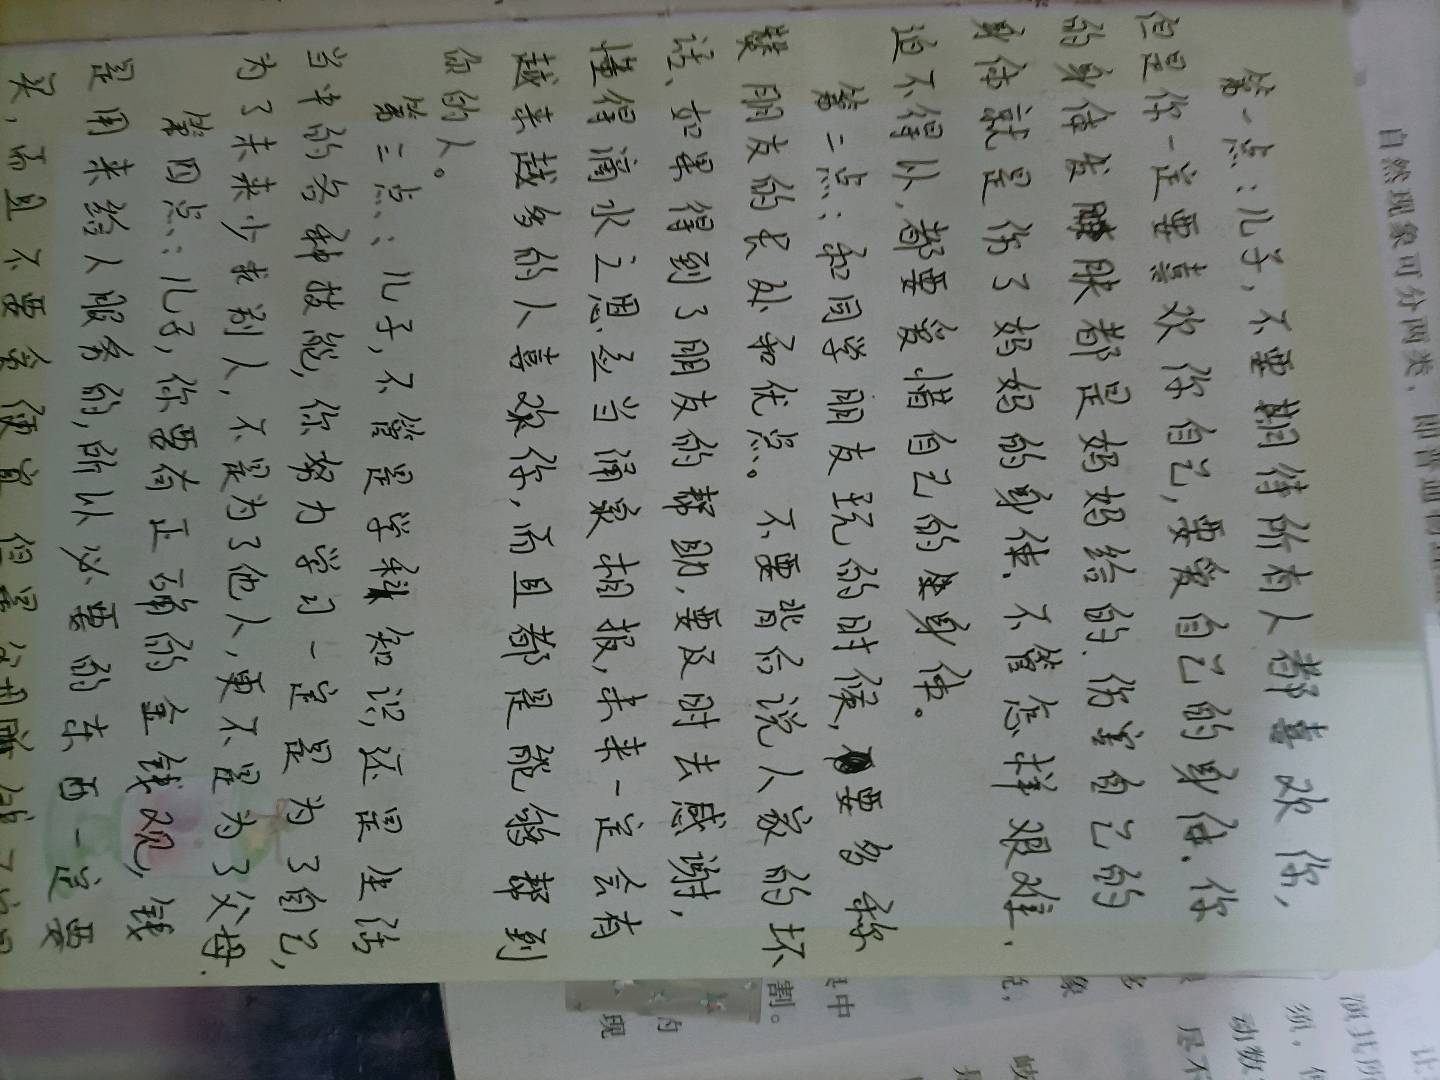 第一点：儿子，不要期待所有人都喜欢你，
但是你一定要喜欢你自己，要爱自己的身体．你
的身体发肤都是妈妈给的．伤害自己的
身体就是伤了妈妈的身体．不管怎样艰难．
迫不得以，都要爱惜自己的身体。
第二点：和同学朋友玩的时候，要多称
赞朋友的长处和优点。不要背后说人家的坏
话、如果得到了朋友的帮助，要及时去感谢，
懂得滴水之恩应当涌泉相报，未来一定会有
越来越多的人喜欢你，而且都是能够帮到
你的人。
第三点：儿子，不管是学科知识，还是生活
当中的各种技能，你努力学习一定是为了自己，
为了未来少求别人，不是为了他人，更不是为了父母．
第四点：儿子，你要有正确的金钱观，钱
是用来给人服务的，所以必要的东西一定要
买，而且不要贪便宜
自然现象可分两类，即普通
割。
现
动数